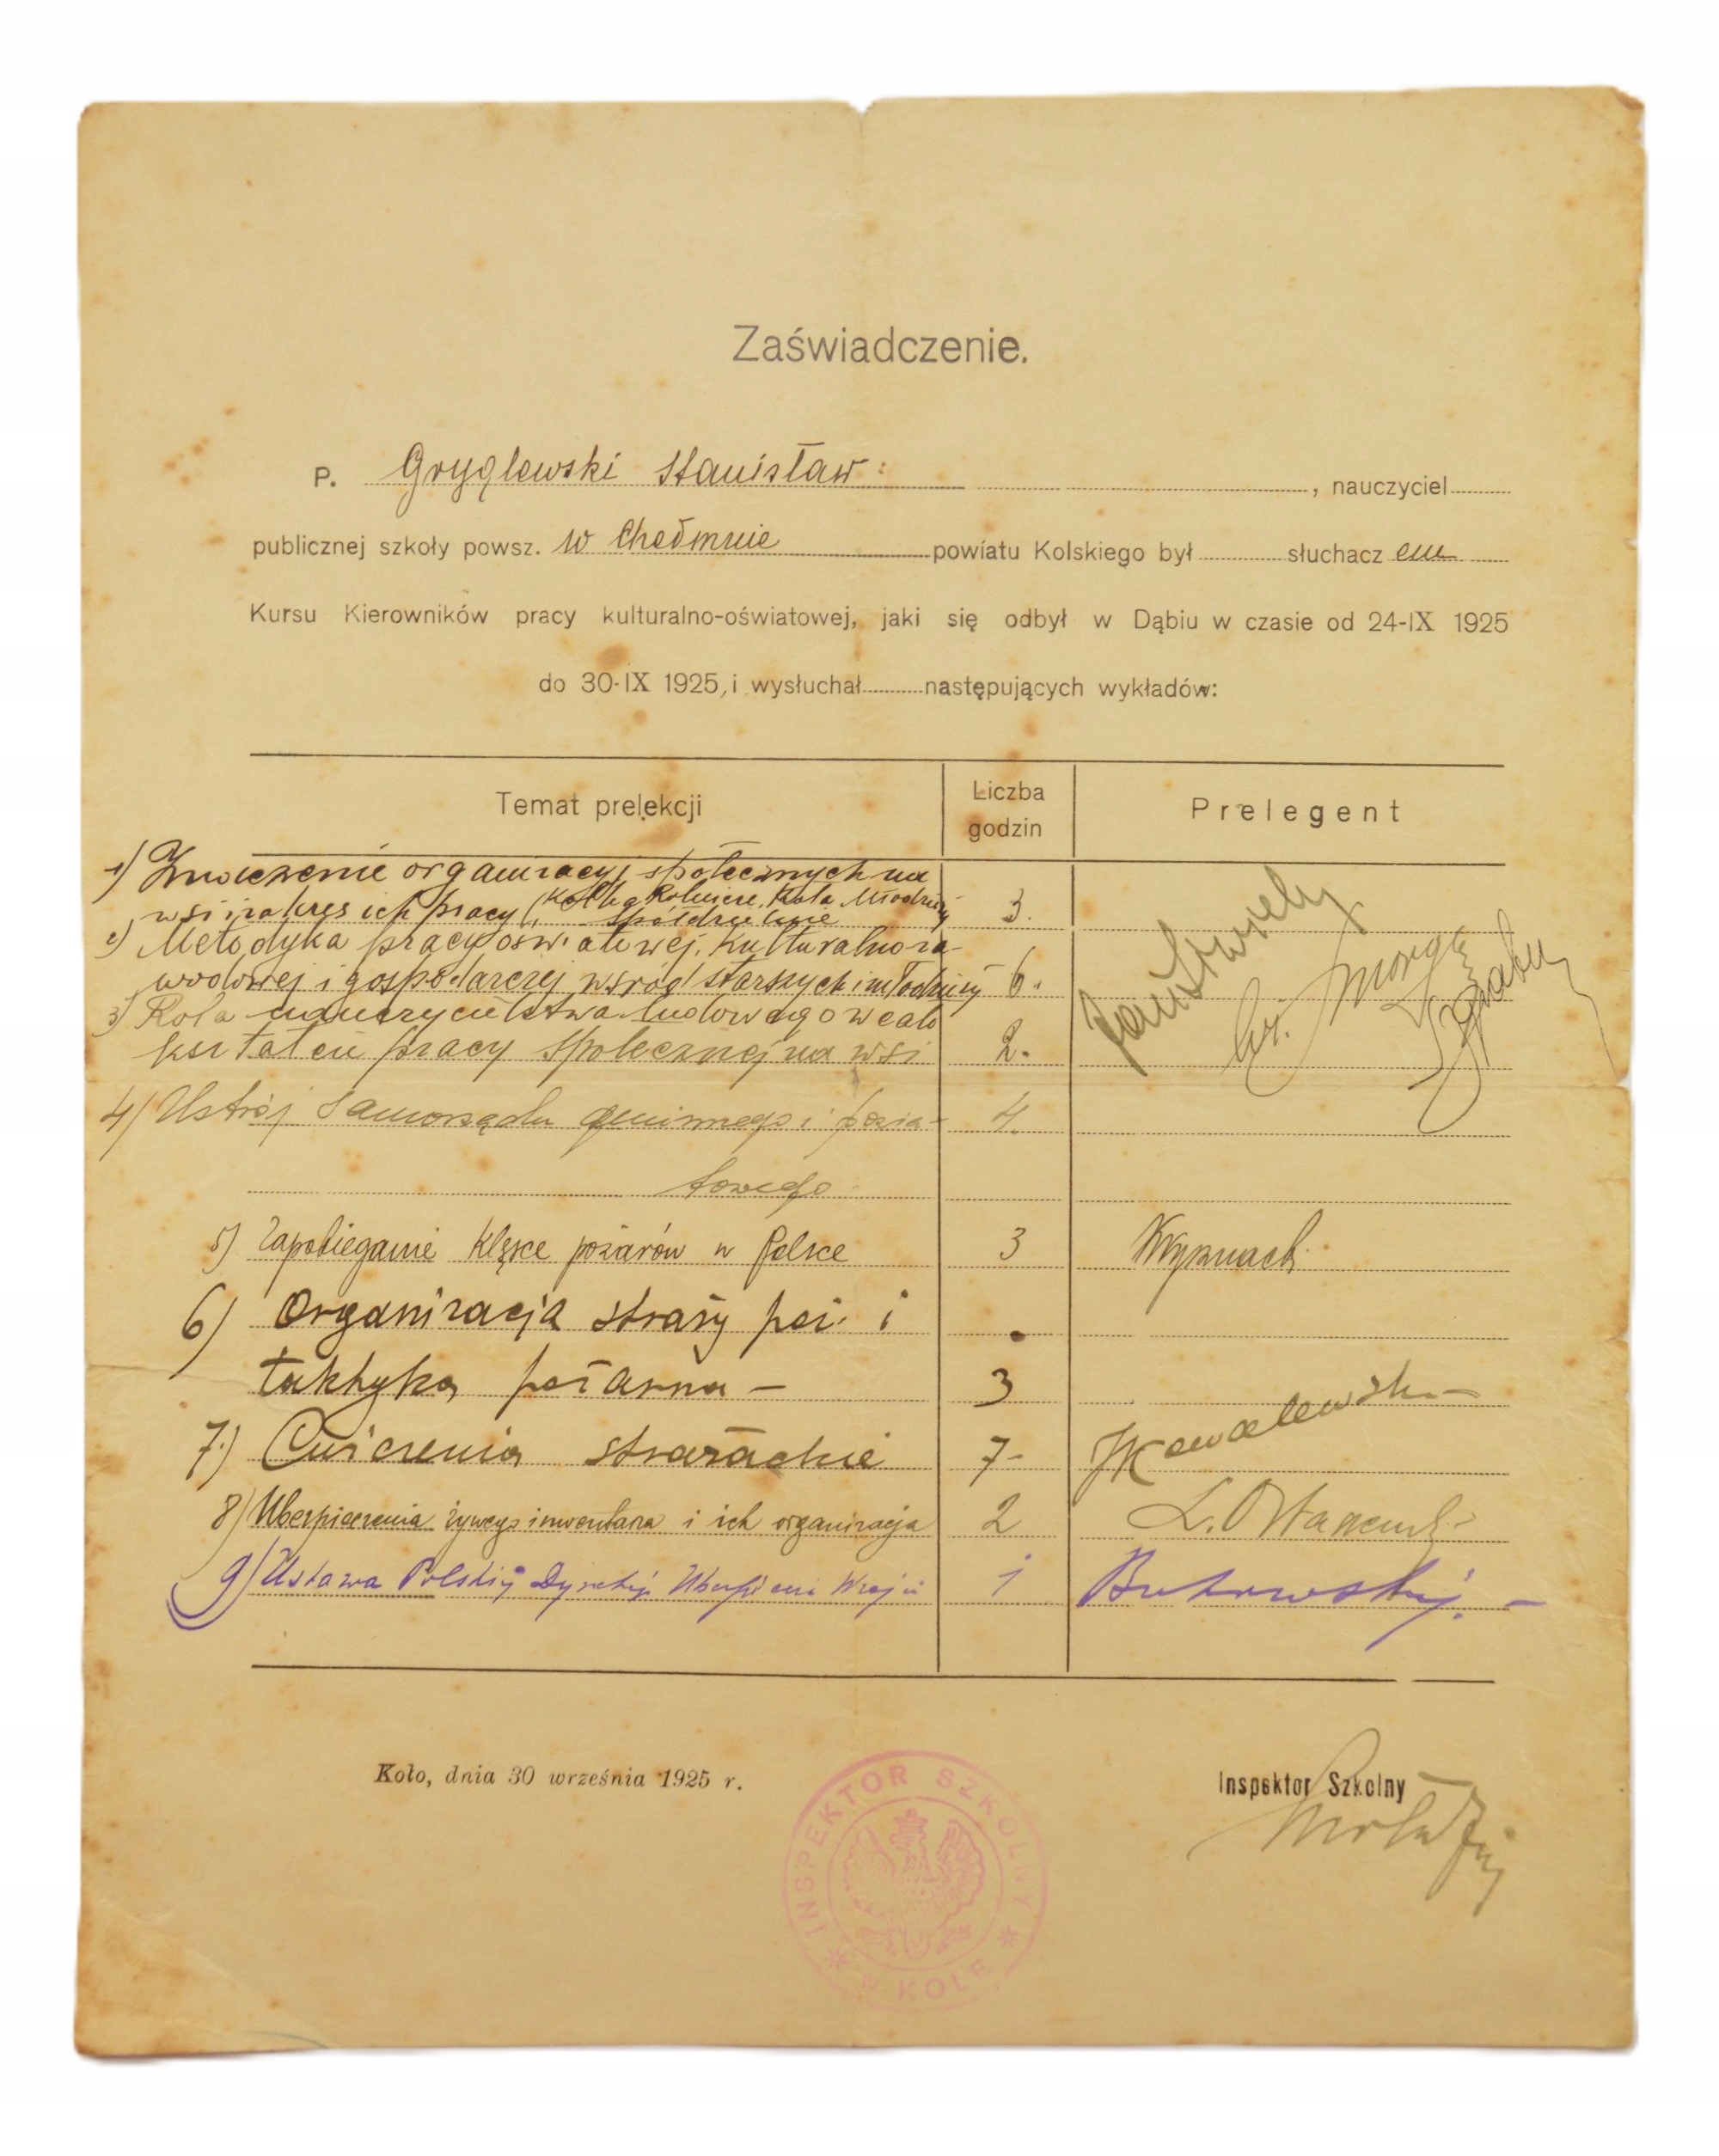 Zaświadczenie.
P. Gryglewski Stanisław: , nauczyciel
publicznej szkoły powsz. w Chełmnie powiatu Kolskiego był słuchacz em
Kursu Kierowników pracy kulturalno-oświatowej, jaki się odbył w Dąbiu w czasie od 24-IX 1925
do 30-IX 1925, i wysłuchał następujących wykładów:
Temat prelekcji Liczba godzin Prelegent
1) Znaczenie organizacyj społecznych na
wsi i zakres ich pracy (Kółka Rolnicze, Koła Młodzieży 3.
spółdzielnie
2) Metodyka pracy oświatowej, kulturalno-za-
wodowej i gospodarczej wśród starszych i młodzieży 6.
3) Rola nauczycielstwa ludowego w cało
kształcie pracy społecznej na wsi 2.
4) Ustrój samorządu gminnego i powia- 4.
towego
5) Zapobieganie klęsce pożarów w Polsce 3
6) Organizacja straży poż. i
taktyka pożarna — 3
7) Ćwiczenia strażackie 7- Kowalewski
8) Ubezpieczenia żywego inwentarza i ich organizacja 2
9) Ustawa Polskiej Dyrekcji Ubezpieczeń Wzajem 1
Koło, dnia 30 września 1925 r.
Inspektor Szkolny
INSPEKTOR SZKOLNY
W KOLE